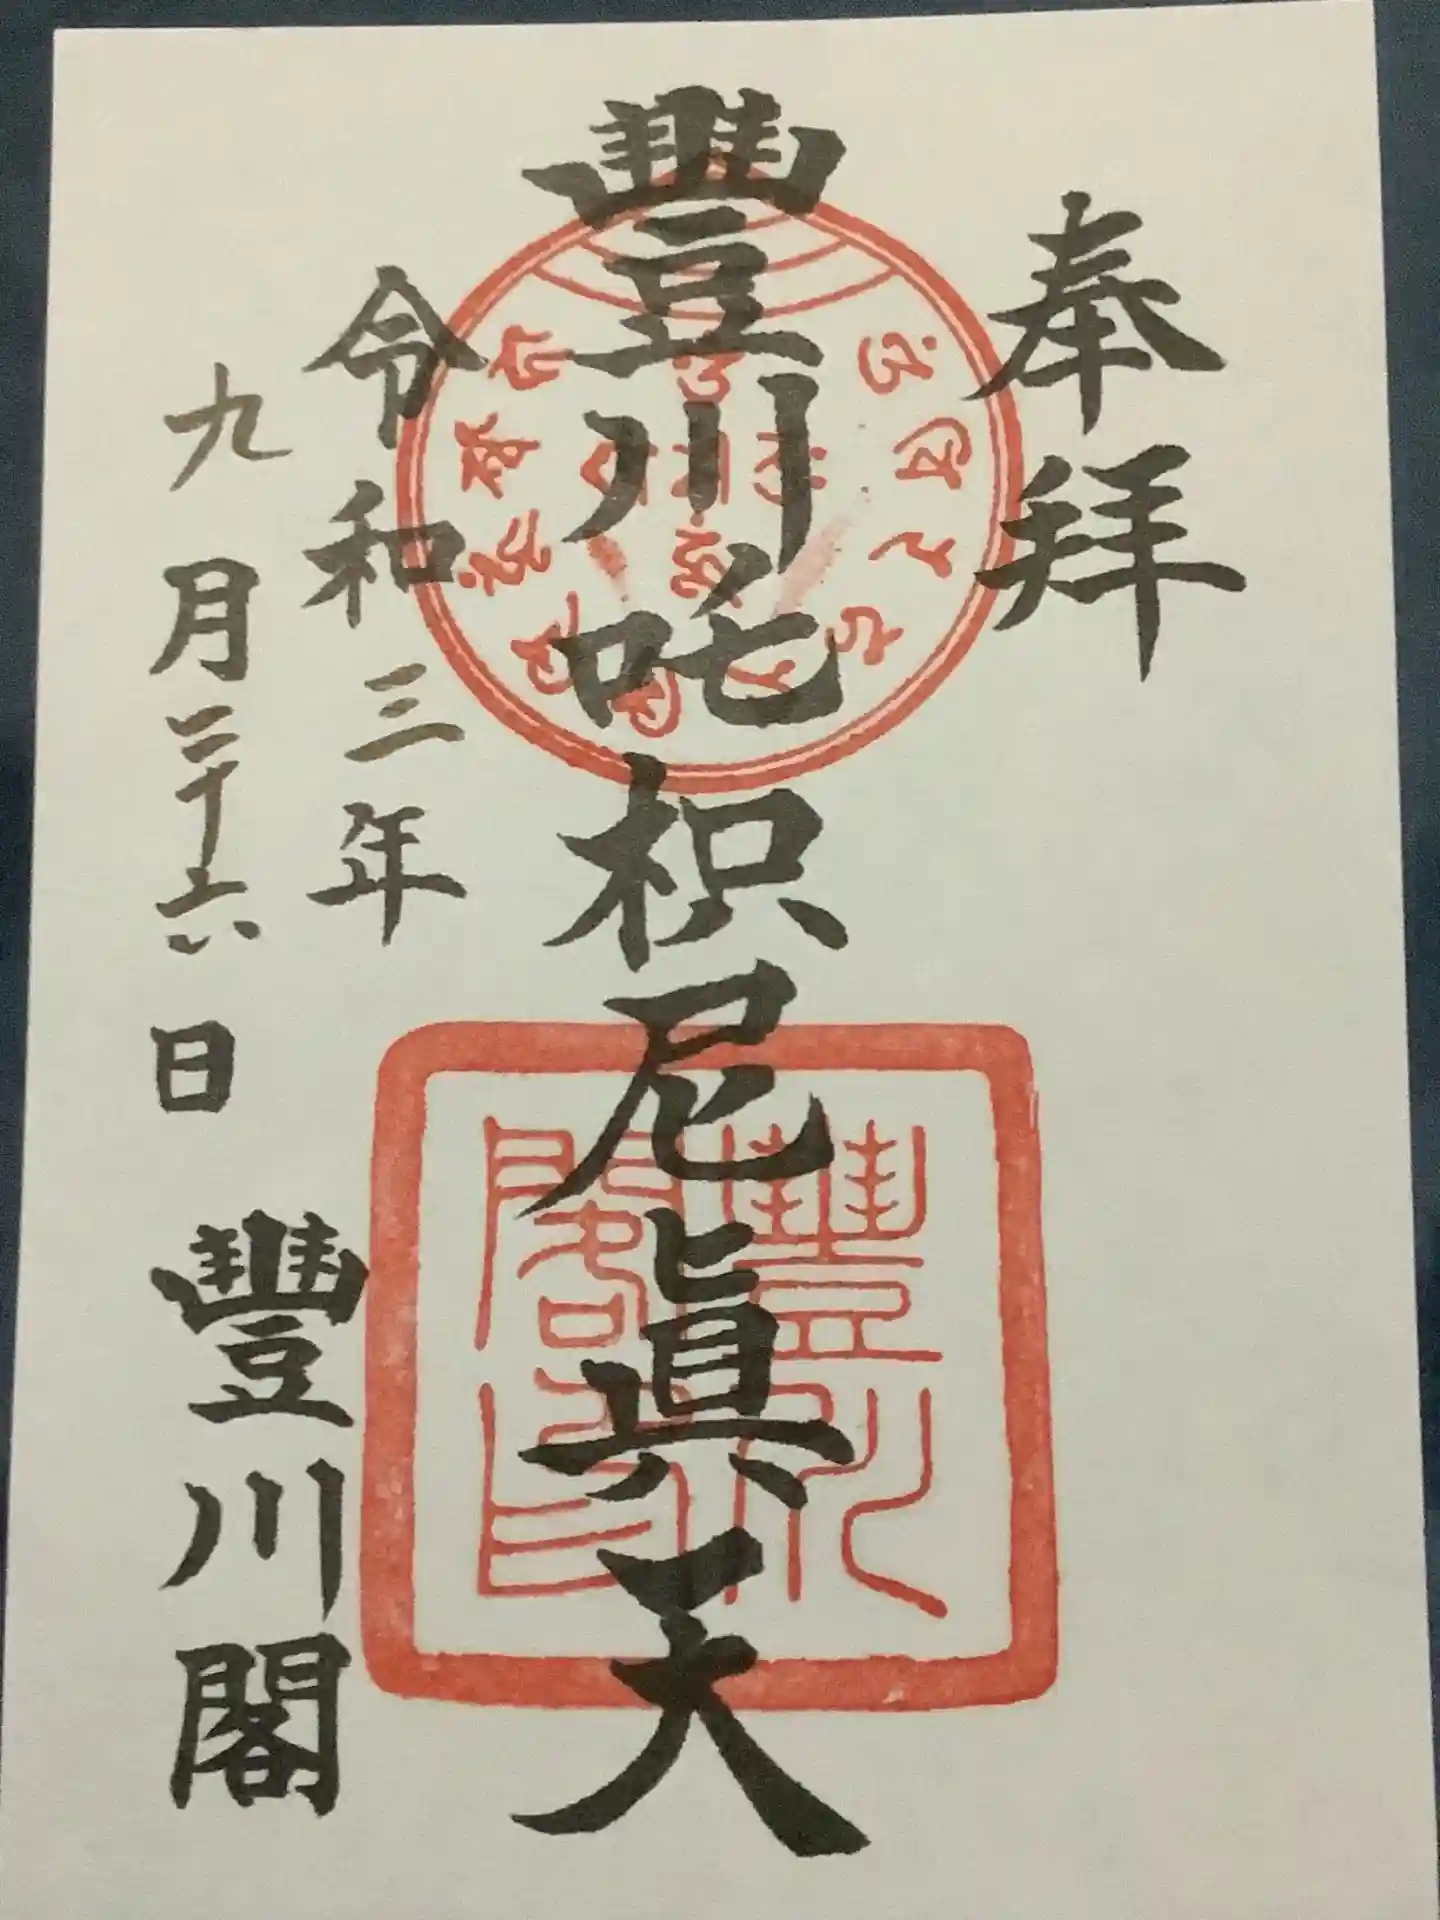 奉拝
豐川吒枳尼眞天
令和三年
九月二十六日
豐川閣
豐川閣印